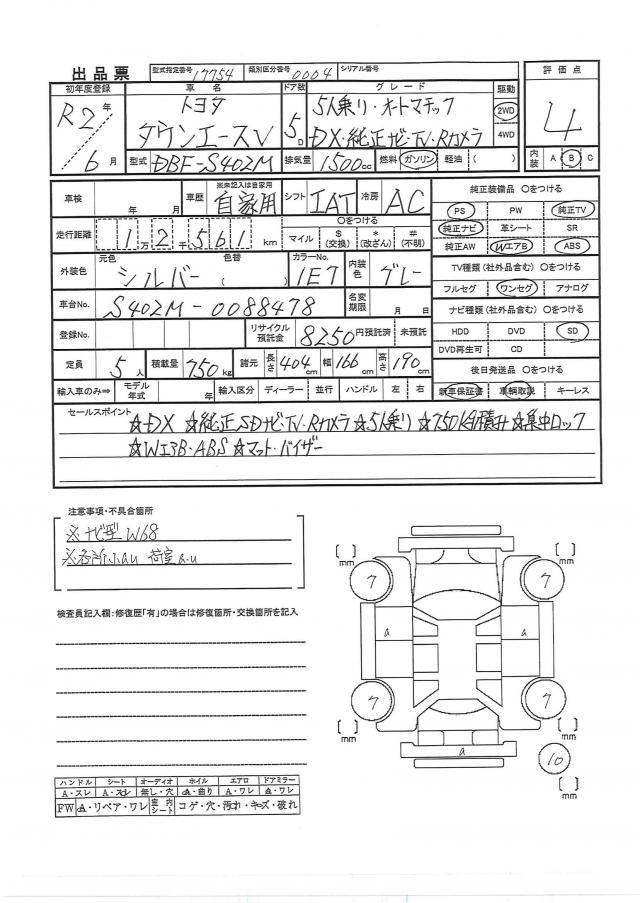 出品票 型式指定番号 17754 類別区分番号 0004 シリアル番号
初年度登録 車名 ドア数 グレード 駆動 評価点
R2年 トヨタ 5D 5人乗り・オートマチック 2WD 4
6月 タウンエースV DX・純正ナビ・TV・Rカメラ 4WD
型式 DBF-S402M 排気量 1500cc 燃料 ガソリン 軽油 ( ) 内装 A B C
車検 年 月 車歴 ※未記入は自家用 自家用 シフト IAT 冷房 AC 純正装備品 〇をつける
走行距離 1万2千561km マイル $(交換) *(改ざん) #(不明) 〇をつける
PS PW 純正TV
純正ナビ 革シート SR
純正AW WエアB ABS
外装色 元色 シルバー 色替 ( ) カラーNo. 1E7 内装色 グレー
TV種類(社外品含む) 〇をつける
フルセグ ワンセグ アナログ
車台No. S402M-0088478 名変期限 月 日
ナビ種類(社外品含む) 〇をつける
登録No. リサイクル預託金 8250円預託済 未預託
HDD DVD SD
DVD再生可 CD
定員 5人 積載量 750kg 諸元 長さ 404cm 幅 166cm 高さ 190cm
後日発送品 〇をつける
輸入車のみ⇒ モデル年式 年 輸入区分 ディーラー 並行 ハンドル 左 右
新車保証書 車輌取説 キーレス
セールスポイント
☆DX ☆純正SDナビ・TV・Rカメラ ☆5人乗り ☆750kg積み ☆集中ロック
☆WエアB・ABS ☆マット・バイザー
注意事項・不具合箇所
※ナビ型W68
※各所小au 荷室a.u
検査員記入欄:修復歴「有」の場合は修復箇所・交換箇所を記入
[ ]mm [ ]mm
7 7
a a
7 7
[ ]mm [ ]mm
a
10
[ ]mm
ハンドル シート オーディオ ホイル エアロ ドアミラー
A・スレ A・スレ 無し・穴 A・曲り A・ワレ A・ワレ
FW A・リペア・ワレ 室内シート コゲ・穴・汚れ・キズ・破れ